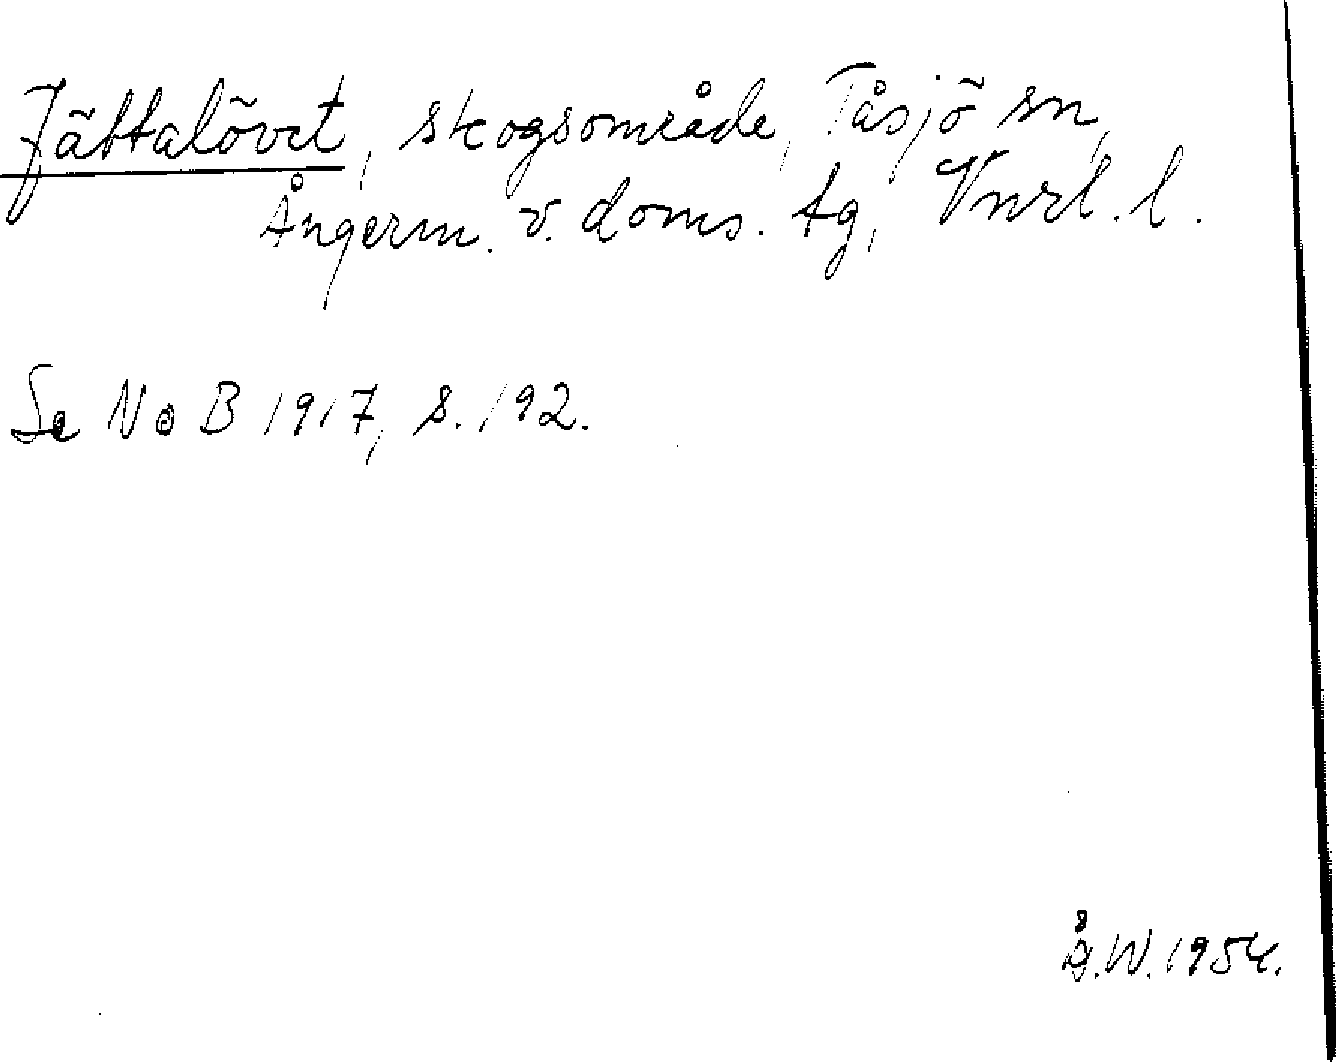 Jättalövet, skogsområde, Tåsjö sn,
Ångerm. v. doms. tg, Vnrl. l.
Se NoB 1917, s. 192.
Å.W. 1954.